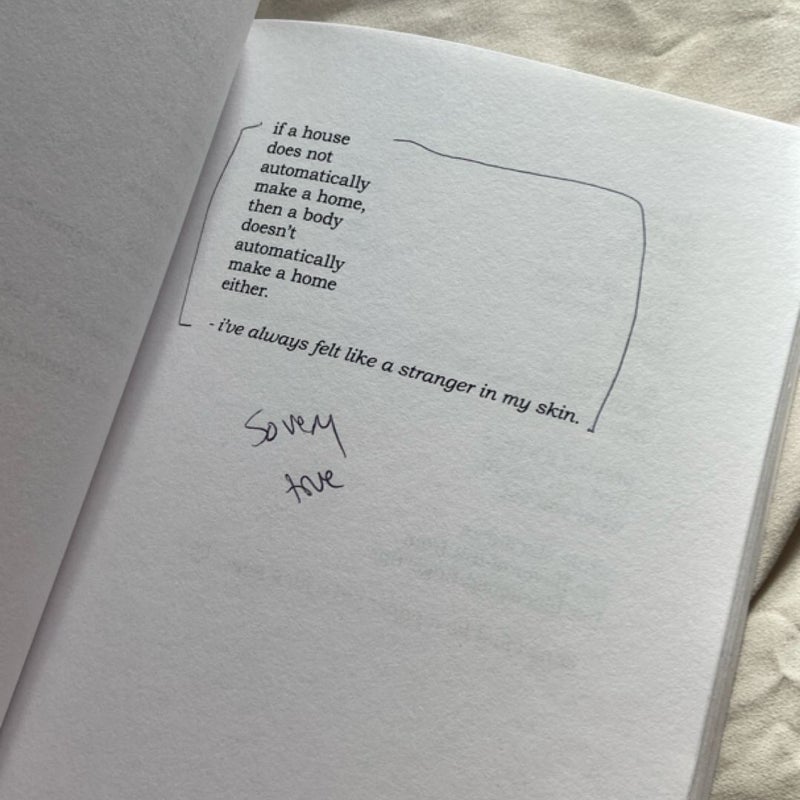 if a house
does not
automatically
make a home,
then a body
doesn't
automatically
make a home
either.
- i've always felt like a stranger in my skin.
so very
true